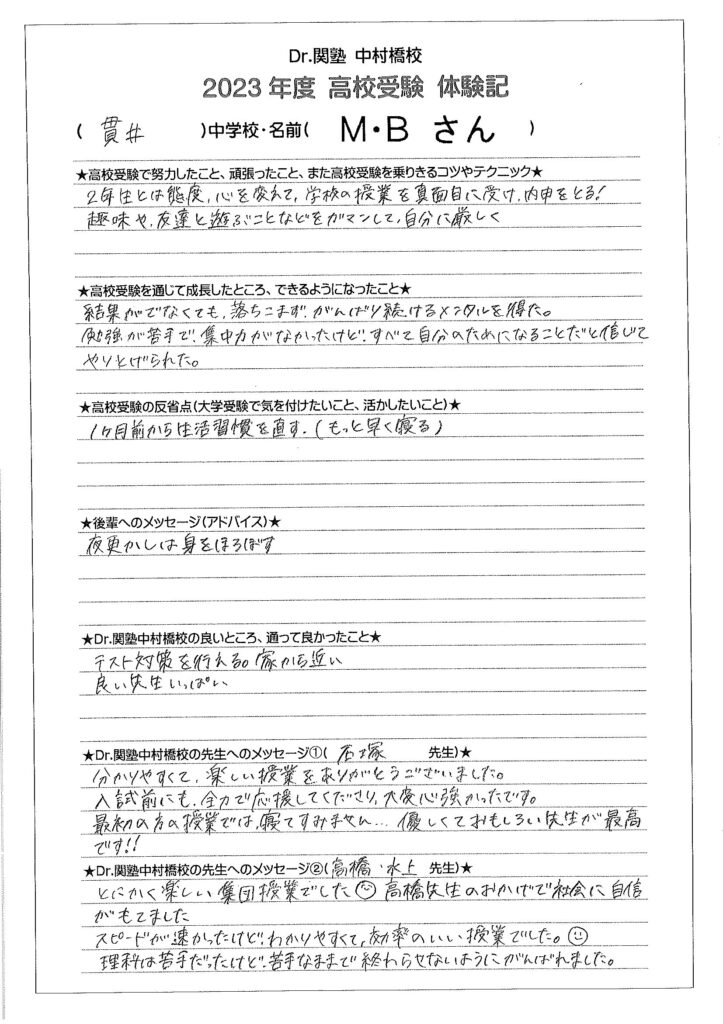 Dr.関塾 中村橋校
2023年度 高校受験 体験記
( 貫井 )中学校・名前( M・B さん )
★高校受験で努力したこと、頑張ったこと、また高校受験を乗りきるコツやテクニック★
2年生とは態度、心を変えて、学校の授業を真面目に受け、内申をとる!
趣味や、友達と遊ぶことなどをガマンして、自分に厳しく
★高校受験を通じて成長したところ、できるようになったこと★
結果がでなくても、落ちこまず、がんばり続けるメンタルを得た。
勉強が苦手で、集中力がなかったけど、すべて自分のためになることだと信じて
やりとげられた。
★高校受験の反省点(大学受験で気を付けたいこと、活かしたいこと)★
1ヶ月前から生活習慣を直す.(もっと早く寝る)
★後輩へのメッセージ(アドバイス)★
夜更かしは身をほろぼす
★Dr.関塾中村橋校の良いところ、通って良かったこと★
テスト対策を行える。家から近い
良い先生いっぱい
★Dr.関塾中村橋校の先生へのメッセージ①( 石塚 先生)★
分かりやすくて、楽しい授業をありがとうございました。
入試前にも、全力で応援してくださり、大変心強かったです。
最初の方の授業では、寝てすみません… 優しくておもしろい先生が最高
です!!
★Dr.関塾中村橋校の先生へのメッセージ②(高橋・水上 先生)★
とにかく楽しい集団授業でした☺ 高橋先生のおかげで社会に自信
がもてました
スピードが速かったけど、わかりやすくて、効率のいい授業でした。☺
理科は苦手だったけど、苦手なままで終わらせないようにがんばれました。